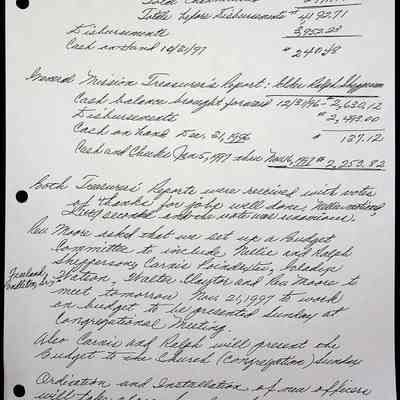 Total before Disbursements $4192.71
Disbursements 3952.23
Cash on hand 12/31/97 $240.48
General Mission Treasurer's Report: Elder Ralph Shepperson
Cash balance brought forward 12/31/96 - 2,630.12
Disbursements $2,493.00
Cash on hand Dec. 31, 1996 $137.12
Cash and Checks Jan 5, 1997 thru Nov 16, 1997 $2,252.82
Both Treasurer's Reports were received with votes
of thanks for jobs well done; Nellie motioned,
Lucy second and the vote was unanimous.
Rev Moore asked that we set up a Budget
Committee to include Nellie and Ralph
Shepperson, Carrie Poindexter, Gladys
Watson, Walter Claytor and Rev Moore to
meet tomorrow Nov 21, 1997 to work
on budget to be presented Sunday at
Congregational Meeting.
Also Carrie and Ralph will present the
Budget to the Church (Congregation) Sunday
Ordination and Installation of new officers
will take place